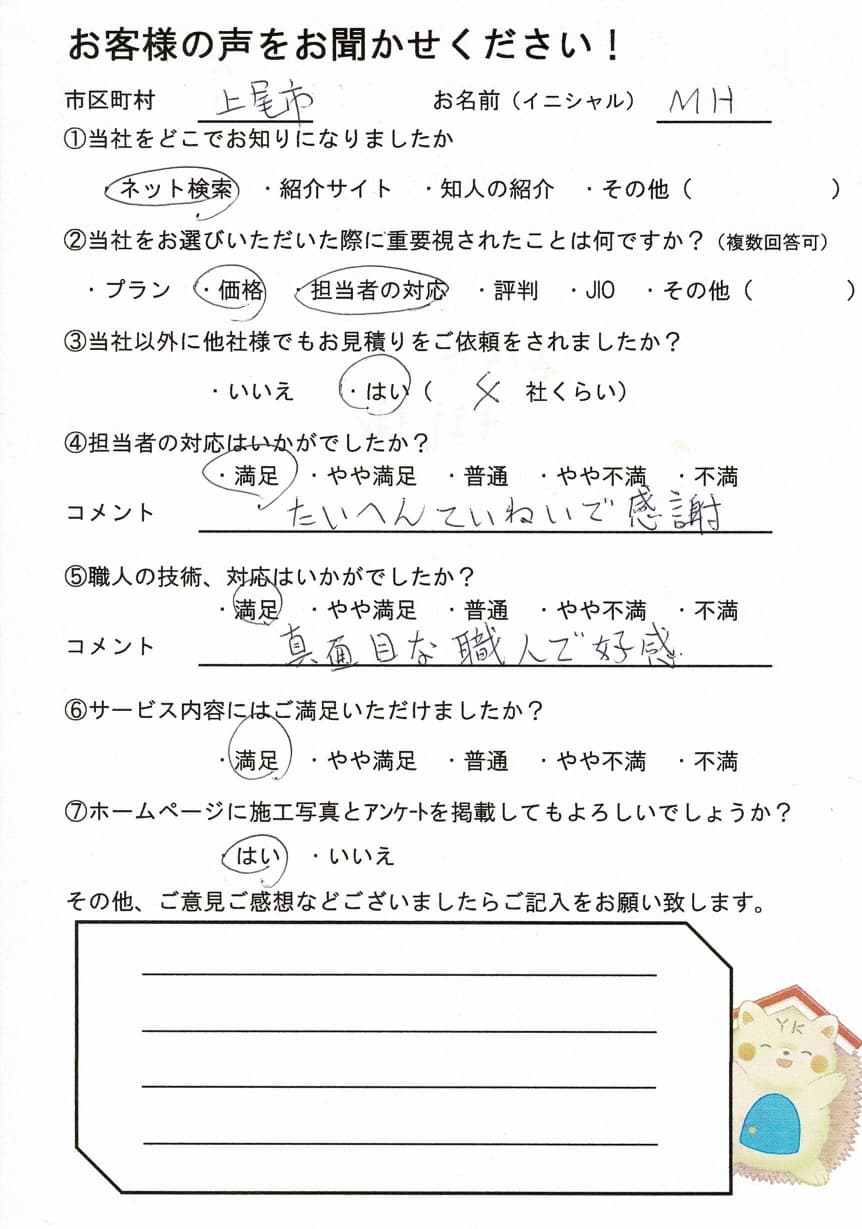 お客様の声をお聞かせください！
市区町村 上尾市 お名前（イニシャル） MH
①当社をどこでお知りになりましたか
・ネット検索 ・紹介サイト ・知人の紹介 ・その他（ ）
②当社をお選びいただいた際に重要視されたことは何ですか？（複数回答可）
・プラン ・価格 ・担当者の対応 ・評判 ・JIO ・その他（ ）
③当社以外に他社様でもお見積りをご依頼をされましたか？
・いいえ ・はい（ 社くらい）
④担当者の対応はいかがでしたか？
・満足 ・やや満足 ・普通 ・やや不満 ・不満
コメント たいへんていねいで感謝
⑤職人の技術、対応はいかがでしたか？
・満足 ・やや満足 ・普通 ・やや不満 ・不満
コメント 真面目な職人で好感.
⑥サービス内容にはご満足いただけましたか？
・満足 ・やや満足 ・普通 ・やや不満 ・不満
⑦ホームページに施工写真とｱﾝｹｰﾄを掲載してもよろしいでしょうか？
・はい ・いいえ
その他、ご意見ご感想などございましたらご記入をお願い致します。
YK